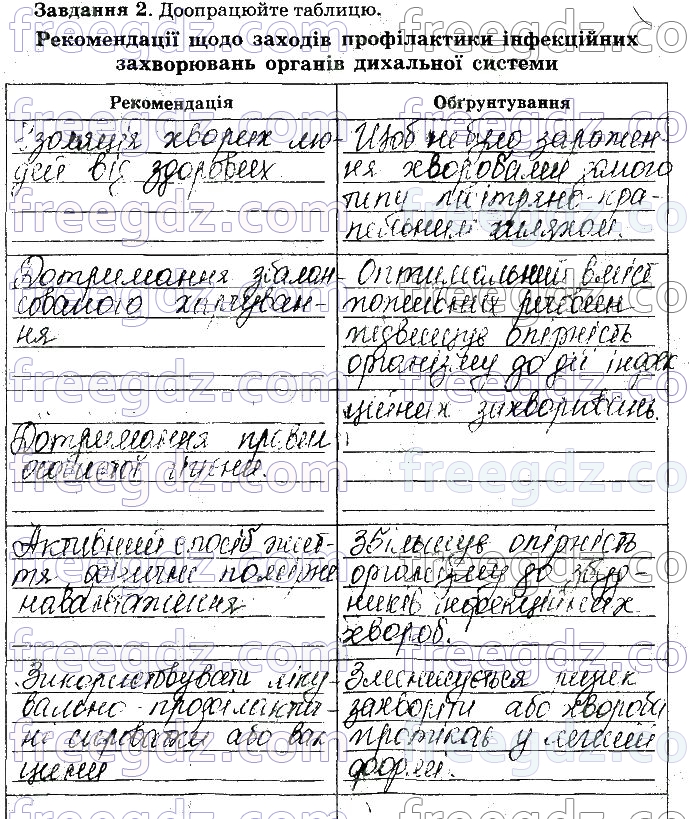 Завдання 2. Доопрацюйте таблицю.
Рекомендації щодо заходів профілактики інфекційних
захворювань органів дихальної системи
Рекомендація
Ізоляція хворих лю-
дей від здорових
Обґрунтування
Щоб не було заражен-
ня хворобами самого
типу повітряно-кра-
пельним шляхом.
Дотримання збалан-
сованого харчуван-
ня
Оптимальний вміст
поживних речовин
підвищує опірність
організму до дії інфек
ційних захворювань.
Дотримання правил
особистої гігієни.
Активний спосіб жит-
тя фізичне помірне
навантаження
Збільшує опірність
організму до збуд-
ників інфекційних
хвороб.
Використовувати ліку-
вально-профілакти-
чні сироватки або вак
цини
Зменшується ризик
захворіти або хвороба
протікає у легшій
формі.
freegdz.com